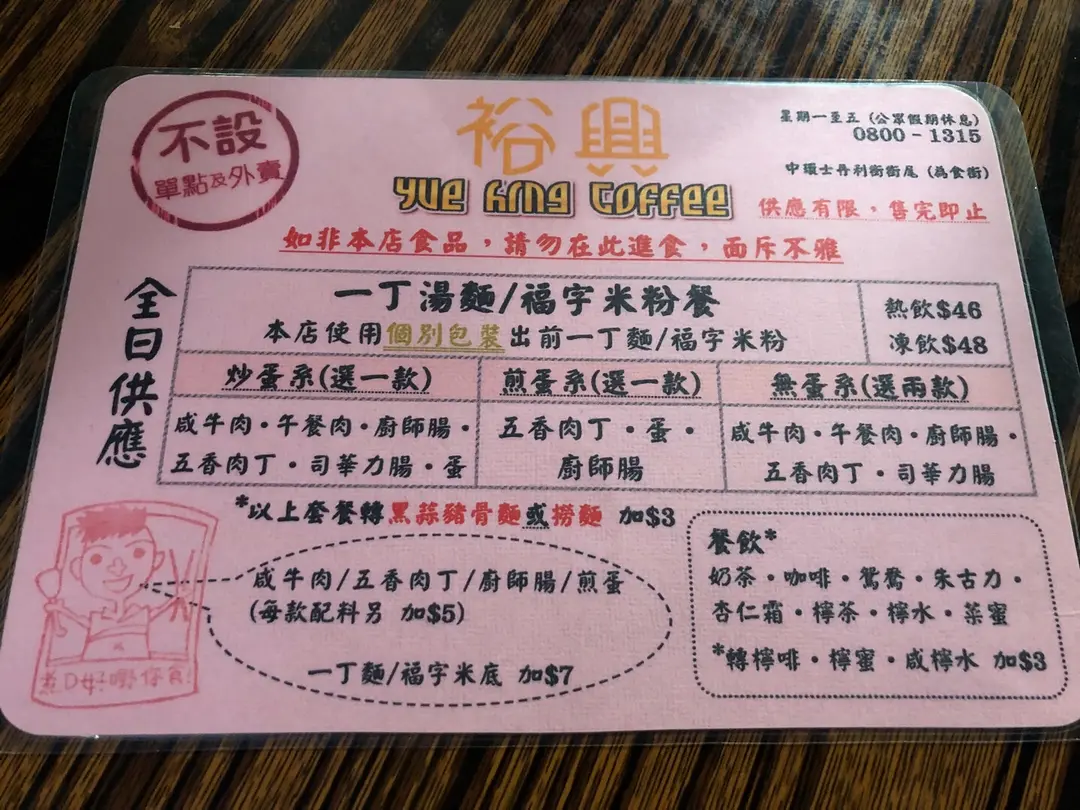 不設
單點及外賣
裕興
Yue Hing Coffee
星期一至五 (公眾假期休息)
0800 - 1315
中環士丹利街街尾 (為食街)
供應有限,售完即止
如非本店食品,請勿在此進食,面斥不雅
全日供應
一丁湯麵/福字米粉餐
本店使用個別包裝出前一丁麵/福字米粉
熱飲$46
凍飲$48
炒蛋系(選一款)
咸牛肉・午餐肉・廚師腸・
五香肉丁・司華力腸・蛋
煎蛋系(選一款)
五香肉丁・蛋・
廚師腸
無蛋系(選兩款)
咸牛肉・午餐肉・廚師腸・
五香肉丁・司華力腸
*以上套餐轉黑蒜豬骨麵或撈麵 加$3
咸牛肉/五香肉丁/廚師腸/煎蛋
(每款配料另 加$5)
一丁麵/福字米底 加$7
餐飲*
奶茶・咖啡・鴛鴦・朱古力・
杏仁霜・檸茶・檸水・菜蜜
*轉檸啡・檸蜜・咸檸水 加$3
煮D好嘢你食!